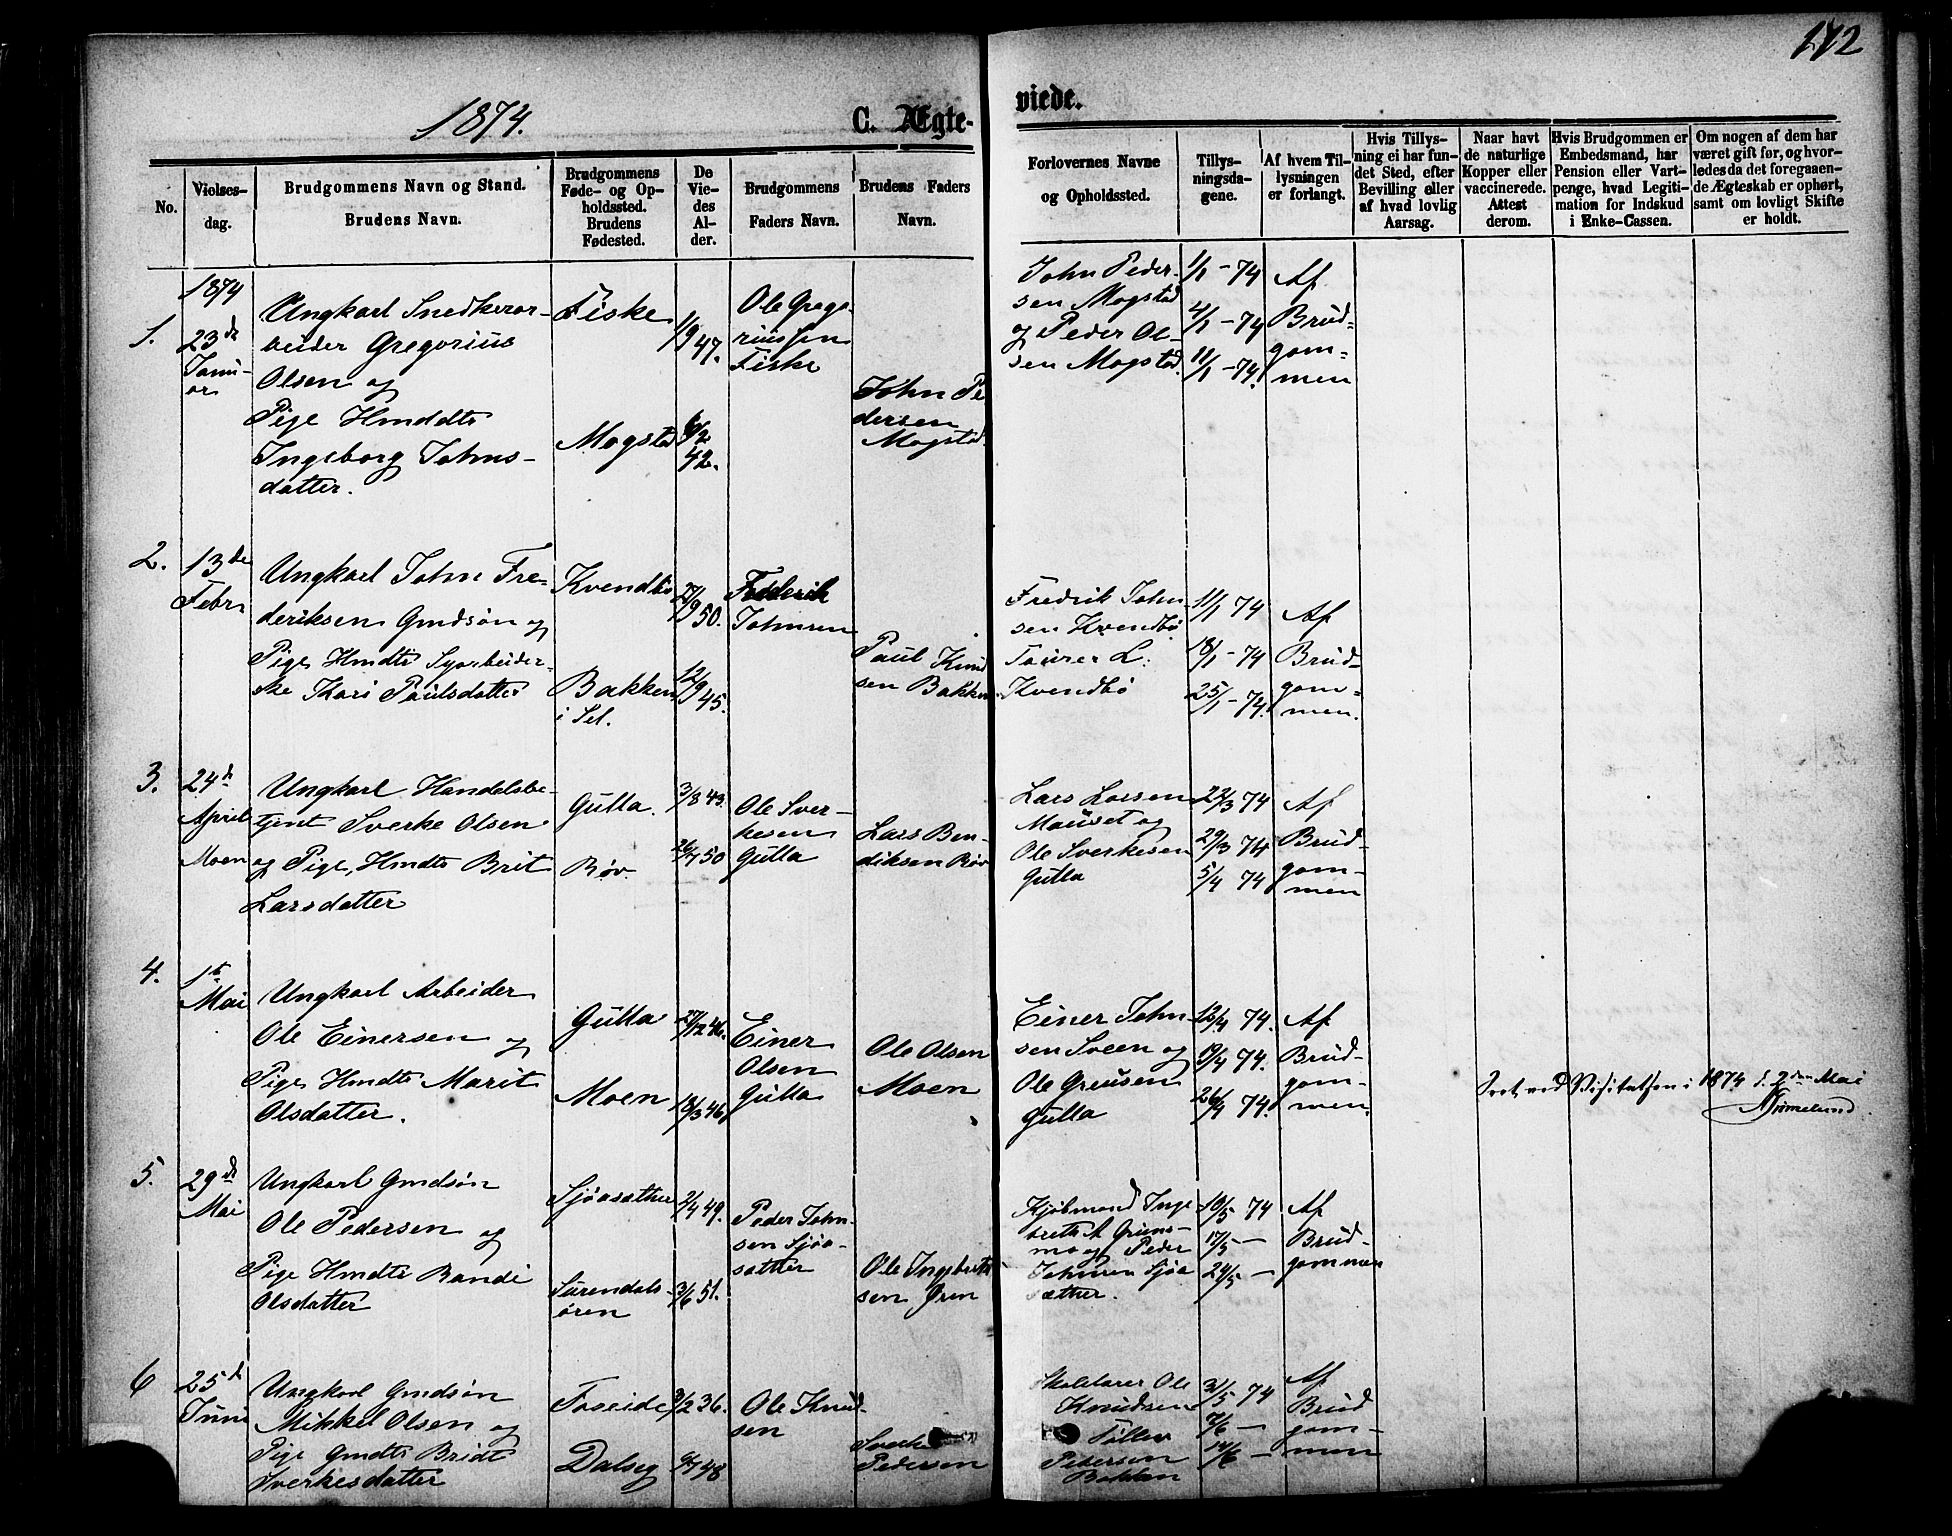 172
1874.
C. Ægte-
viede.
No.
Vielses-
dag.
Brudgommens Navn og Stand.
Brudens Navn.
Brudgommens
Føde- og Op-
holdssted.
Brudens
Fødested.
De
Vie-
des
Al-
der.
Brudgommens
Faders Navn.
Brudens Faders
Navn.
Forlovernes Navne
og Opholdssted.
Tillys-
ningsda-
gene.
Af hvem Til-
lysningen
er forlangt.
Hvis Tillys-
ning ei har fun-
det Sted, efter
Bevilling eller
af hvad lovlig
Aarsag.
Naar havt
de naturlige
Kopper eller
vaccinerede.
Attest
derom.
Hvis Brudgommen er
Embedsmand, har
Pension eller Vart-
penge, hvad Legiti-
mation for Indskud
i Enke-Cassen.
Om nogen af dem har
været gift før, og hvor-
ledes da det foregaaen-
de Ægteskab er ophørt,
samt om lovligt Skifte
er holdt.
1.
1874
23de
Janu-
ar
Ungkarl Snedkerar-
beider Gregorius
Olsen og
Pige Hmddtr
Ingeborg Johns-
datter.
Fiske
Mogstad
1/9 47.
6/2
42.
Ole Grego-
riussen
Fiske
John Pe
dersen
Mogstad
John Peder-
sen Mogstad
og Peder Ol-
sen Mogstad.
1/1 - 74
4/1 - 74
11/1 - 74.
Af
Brud-
gom-
men
2.
13de
Febr.
Ungkarl John Fre-
deriksen Gmdsøn og
Pige Hmdtr Syarbeider-
ske Kari Paulsdatter
Kvendbø
Bakken
i Sel.
27/9 50.
12/9 45.
Frederik
Johnsen
Paul Knud
sen Bakken
Fredrik John
sen Kvendbø
Tourer L.
Kvendbø
11/1 74
18/1 - 74
25/1 - 74.
Af
Brud-
gom-
men.
3.
24de
April
Moen
Ungkarl Handelsbe-
tjent Sverke Olsen
og Pige, Hmdtr Brit
Larsdatter
Gulla.
Røv.
3/8 43.
26/7 50
Ole Sver-
kesen
Gulla
Lars Ben-
diksen Røv
Lars Larsen
Mauset og
Ole Sverkesen
Gulla
22/3 74
29/3 74
5/4 74
Af
Brud-
gom-
men
4.
1te
Mai
Ungkarl Arbeider
Ole Einersen og
Pige Hmdtr Marit
Olsdatter.
Gulla
Moen
27/12 46.
18/3 46
Einer
Olsen
Gulla
Ole Olsen
Moen
Einer John
sen Sveen og
Ole Greusen
Gulla
12/4 74.
19/4 74.
26/4 74.
Af
Brud-
gom-
men.
Seet ved Visitatsen i 1874 d. 2den Mai
Grimelund.
5.
29de
Mai
Ungkarl Gmdsøn
Ole Pedersen og
Pige Hmdtr Randi
Olsdatter
Sjøasæther
Surendals-
øren
2/4 49.
3/6 51.
Peder John-
sen Sjøa-
sæther
Ole Ingebrigt
sen Øren
Kjøbmand Inge
brikt A Grims-
mo og Peder
Johnsen Sjøa
sæther.
10/5 74
17/5 -
24/5 -
Af
Brud-
gommen
6
25de
Juni
Ungkarl Gmdsøn
Mikkel Olsen og
Pige Gmdtr Bridt
Sverkesdatter
Foseide
Dalseg
3/2 36.
9/7 48
Ole Knud-
sen
Sverke
Pedersen
Skolelærer Ole
Knudsen
Tøllev
Pedersen
Bakken
31/5 74
7/6 -
14/6 -
Af
Brud
gom-
men